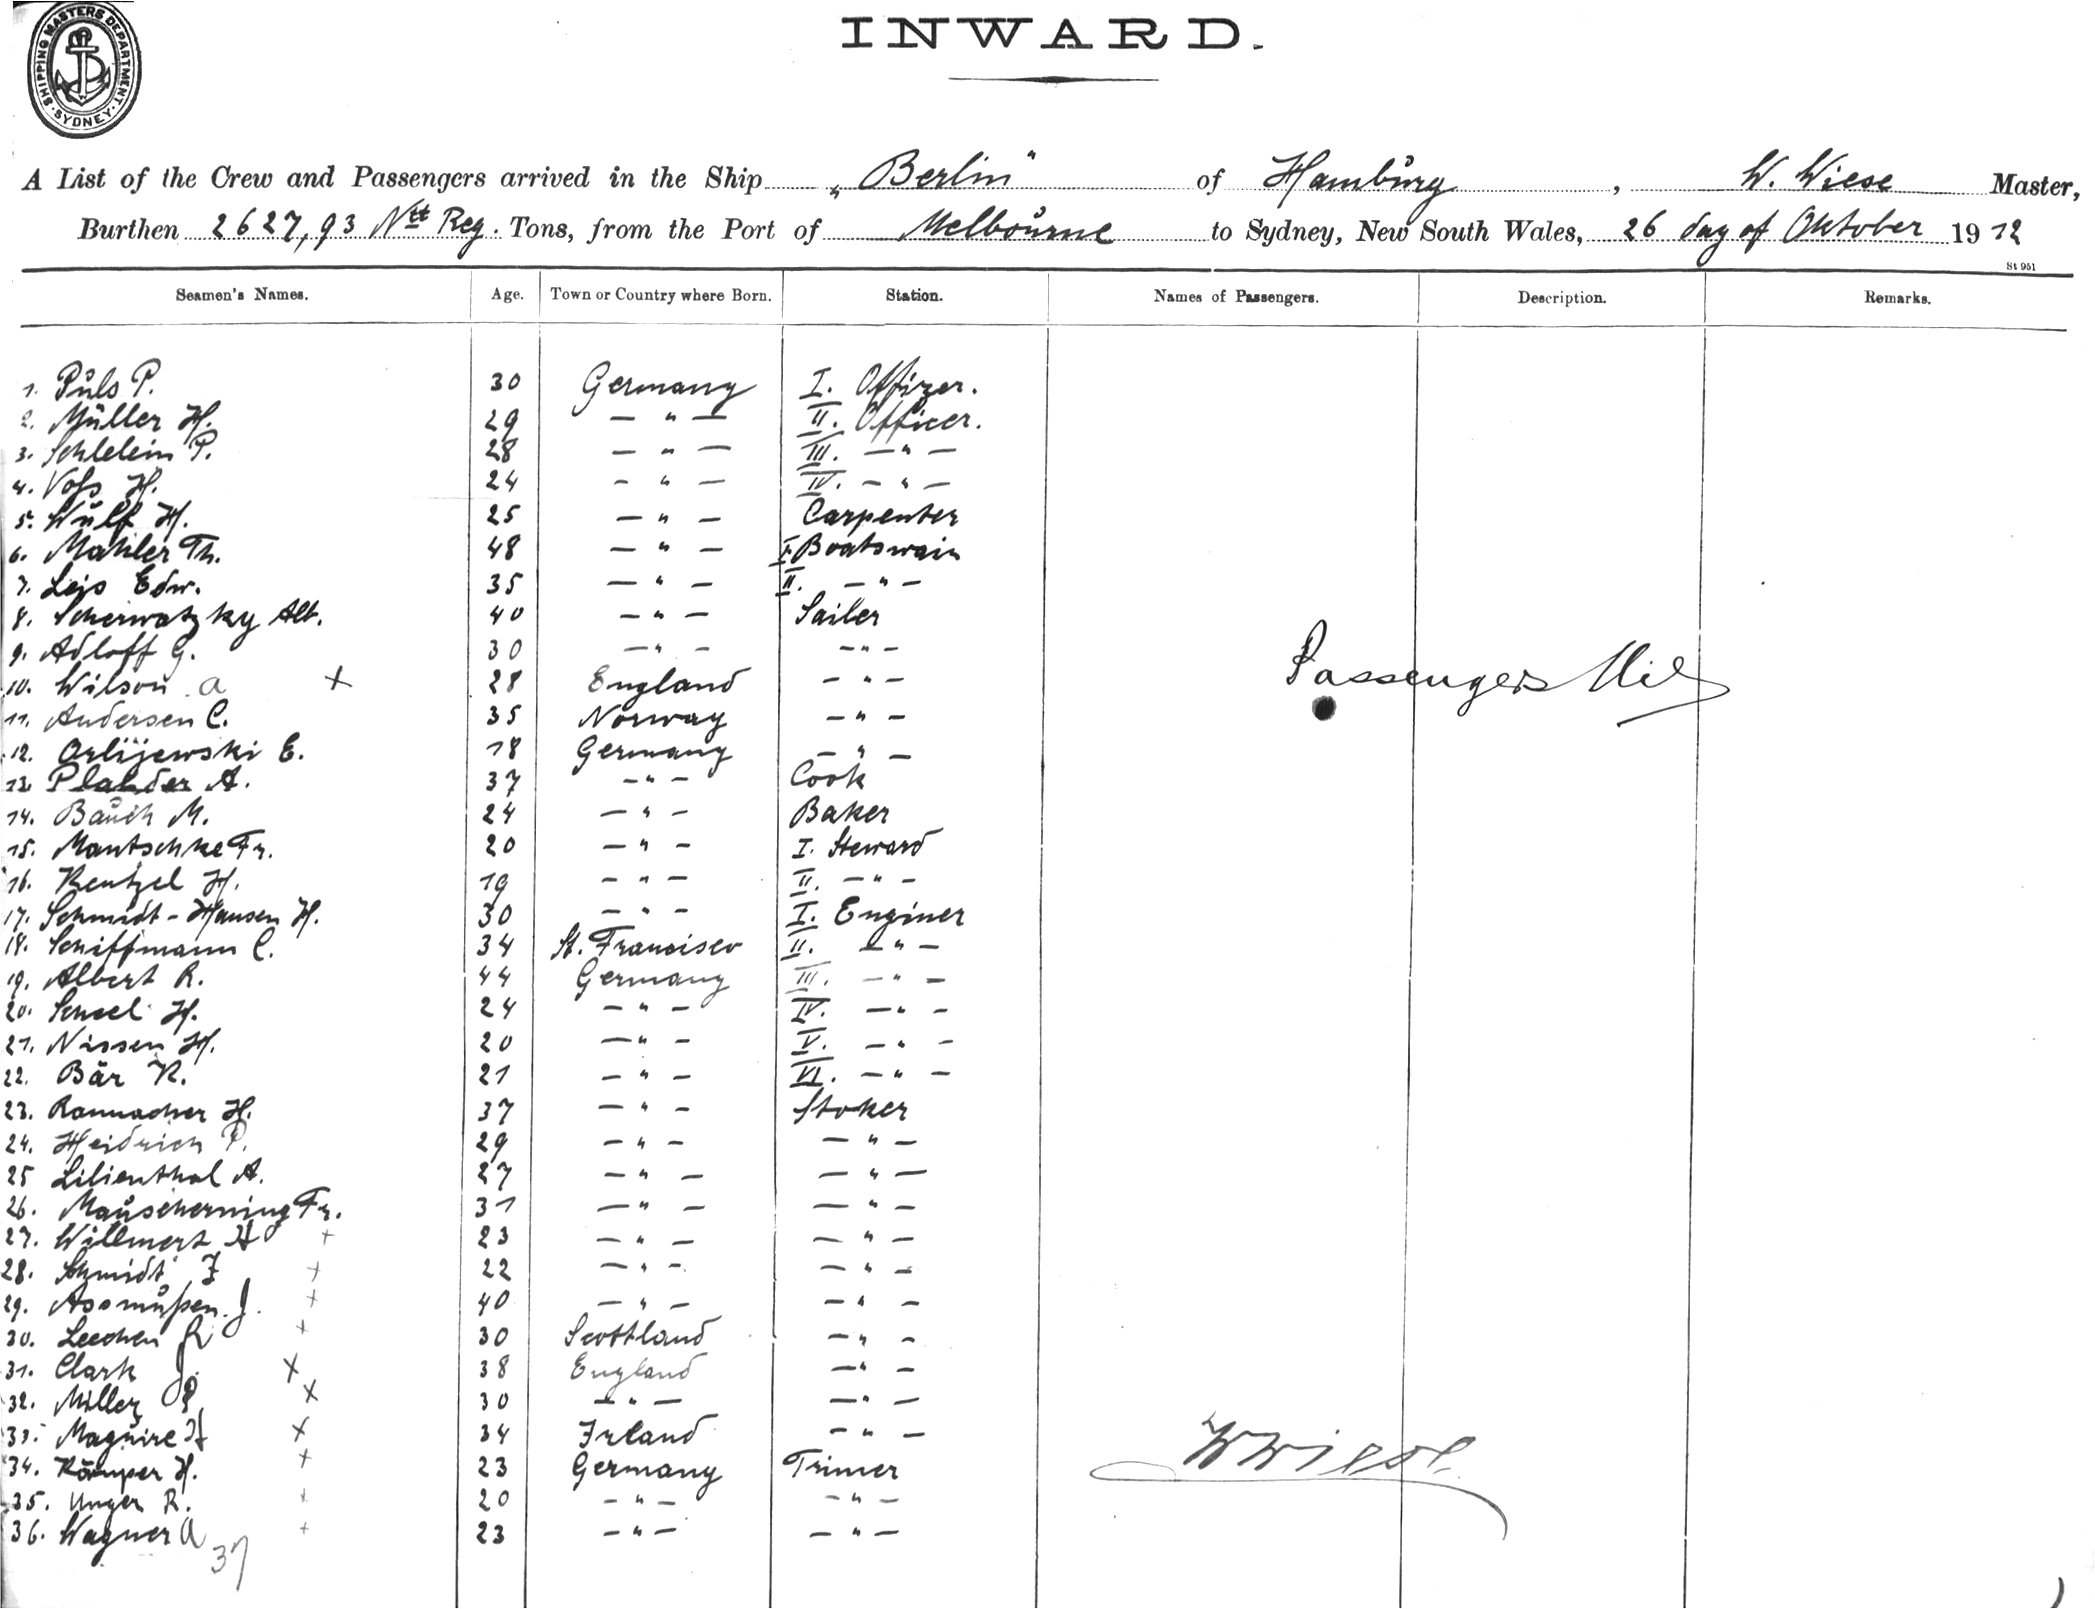 SHIPPING MASTERS DEPARTMENT · SYDNEY ·
INWARD.
A List of the Crew and Passengers arrived in the Ship „Berlin" of Hamburg, W. Wiese Master,
Burthen 2627,93 Ntt Reg. Tons, from the Port of Melbourne to Sydney, New South Wales, 26 day of Oktober 1912
St 951
Seamen's Names. Age. Town or Country where Born. Station. Names of Passengers. Description. Remarks.
1. Puls P. 30 Germany I. Offizer.
2. Müller H. 29 — " — II. Officer.
3. Schlelein P. 28 — " — III. — " —
4. Voß H. 24 — " — IV. — " —
5. Wulf H. 25 — " — Carpenter
6. Mahler Th. 48 — " — I Boatswain
7. Leis Edw. 35 — " — II. — " —
8. Scherwatzky Alb. 40 — " — Sailer
9. Adloff G. 30 — " — — " —
10. Wilson a x 28 England — " —
Passengers Nil
11. Andersen C. 35 Norway — " —
12. Orlijewski E. 18 Germany — " —
13. A. 37 — " — Cook
14. Bauch M. 24 — " — Baker
15. Mantschke Fr. 20 — " — I. Steward
16. Rentzel H. 19 — " — II. — " —
17. Schmidt-Hansen H. 30 — " — I. Enginer
18. Schiffmann C. 34 St. Francisco II. — " —
19. Albert R. 44 Germany III. — " —
20. H. 24 — " — IV. — " —
21. Nissen H. 20 — " — V. — " —
22. Bär K. 21 — " — VI. — " —
23. Rannacher H. 37 — " — Stoker
24. Heidrich P. 29 — " — — " —
25 Lilienthal A. 27 — " — — " —
26. Mauscherning Fr. 31 — " — — " —
27. Willmert H + 23 — " — — " —
28. Schmidt F + 22 — " — — " —
29. Assmußen J. + 40 — " — — " —
30. + 30 Scottland — " —
31. Clark J. x 38 England — " —
32. Miller P x 30 — " — — " —
33. Maguire H x 34 Irland — " —
W Wiese.
34. Kömper H. + 23 Germany Trimer
35. Unger R. + 20 — " — — " —
36. Wagner A + 23 — " — — " —
37